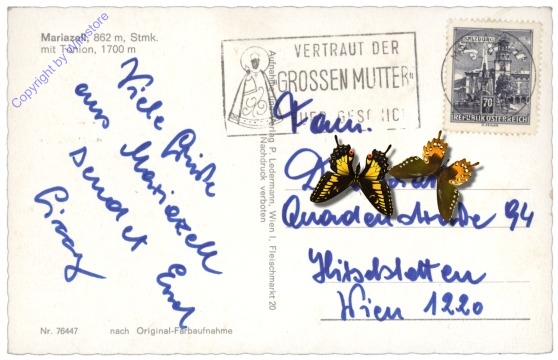 Mariazell, 862 m, Stmk.
mit Tonion, 1700 m
Copyright by Wimstore
Viele Grüße
aus Mariazell
sendet Euch
VERTRAUT DER
GROSSEN MUTTER
SALZBURG
70
REPUBLIK ÖSTERREICH
Verlag P. Ledermann, Wien I, Fleischmarkt 20
Nachdruck verboten
Fam.
Quadenstraße 94
Hirschstetten
Wien 1220
Nr. 76447
nach Original-Farbaufnahme